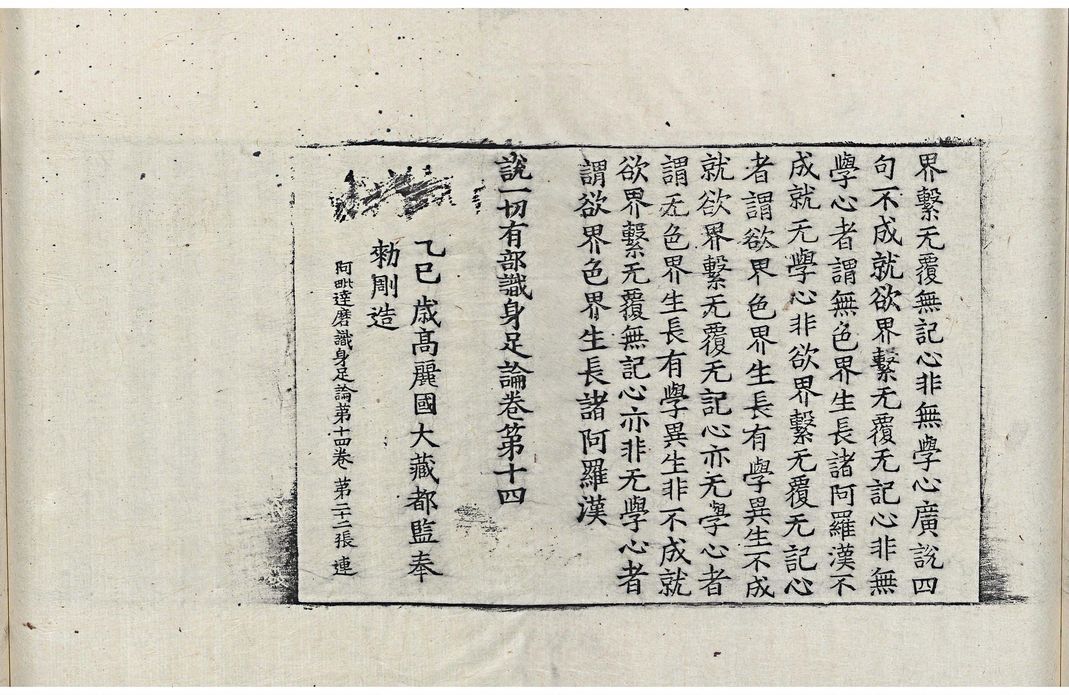 界繫无覆無記心非無學心廣說四
句不成就欲界繫无覆无記心非無
學心者謂無色界生長諸阿羅漢不
成就无學心非欲界繫无覆无記心
者謂欲界色界生長有學異生不成
就欲界繫无覆无記心亦无學心者
謂无色界生長有學異生非不成就
欲界繫无覆無記心亦非无學心者
謂欲界色界生長諸阿羅漢
說一切有部識身足論卷第十四
乙巳歳高麗國大藏都監奉
勑剛造
阿毗達磨識身足論第十四卷 第二十二張 連